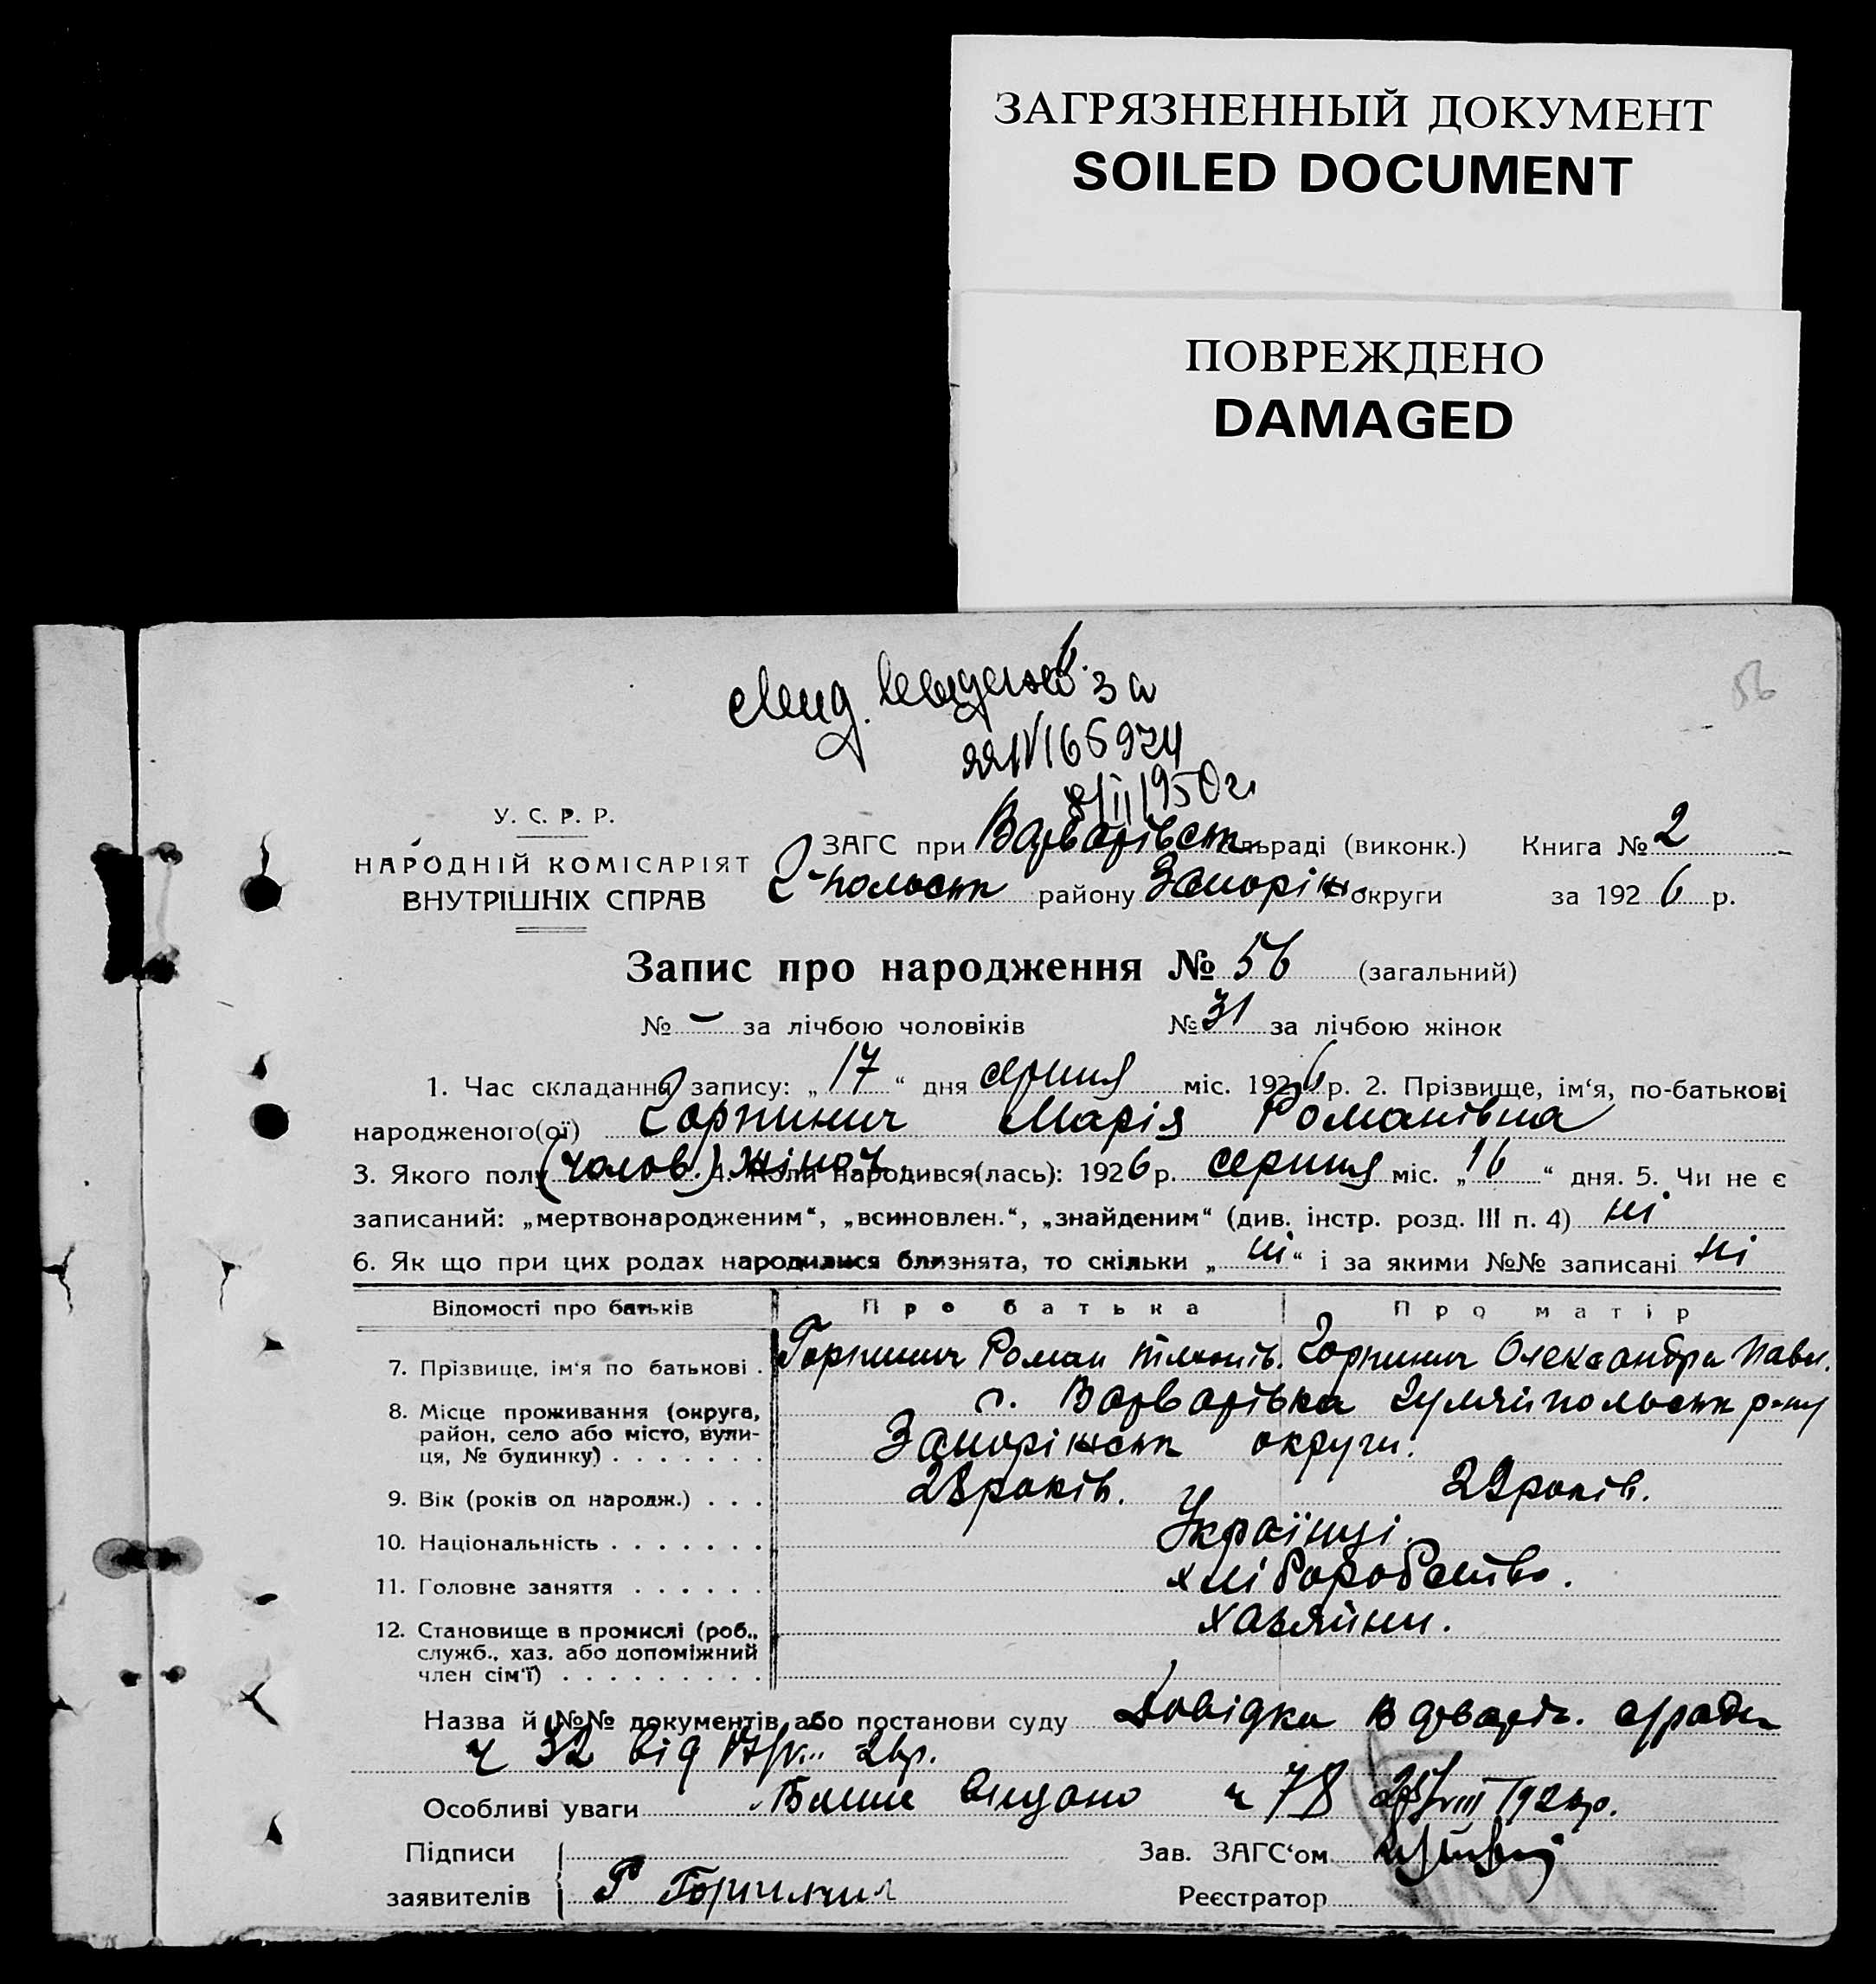 ЗАГРЯЗНЕННЫЙ ДОКУМЕНТ
SOILED DOCUMENT
ПОВРЕЖДЕНО
DAMAGED
56
за
8/II/1950 г.
У. С. Р. Р.
НАРОДНІЙ КОМІСАРІЯТ
ВНУТРІШНІХ СПРАВ
ЗАГС при Варварівськ. сільраді (виконк.) Книга № 2
Г-польськ району Запоріж округи за 1926 р.
Запис про народження № 56 (загальний)
№ – за лічбою чоловіків № 31 за лічбою жінок
1. Час складання запису: „17“ дня серпня міс. 1926 р. 2. Прізвище, ім‘я, по-батькові
народженого(ої) Горпинич Марія Романівна
3. Якого полу (чолов.) жіноч. 4. Коли народився(лась): 1926 р. серпня міс. „16“ дня. 5. Чи не є
записаний: „мертвонародженим“, „всиновлен.“, „знайденим“ (див. інстр. розд. III п. 4) ні
6. Як що при цих родах народилися близнята, то скільки „ні“ і за якими №№ записані ні
Відомості про батьків Про батька Про матір
7. Прізвище, ім‘я по батькові . Горпинич Роман Горпинич Олександра Павл.
8. Місце проживання (округа, район, село або місто, вулиця, № будинку) . . . . . . . с. Варварівка Гуляйпольськ р-ну
Запоріжськ округи.
9. Вік (років од народж.) . . . 28 років. 29 років.
10. Національність . . . . . . . Українці.
11. Головне заняття . . . . . . хліборобство.
12. Становище в промислі (роб., служб., хаз. або допоміжний член сім‘ї) . . . . . . . . . хазяйни.
Назва й №№ документів або постанови суду Довідка Варварів. с/ради
ч 32 від 17/VIII 26 р.
Особливі уваги видано ч 78 /VIII 1926 р.
Підписи Зав. ЗАГС‘ом
заявителів Р Горпинич Реєстратор